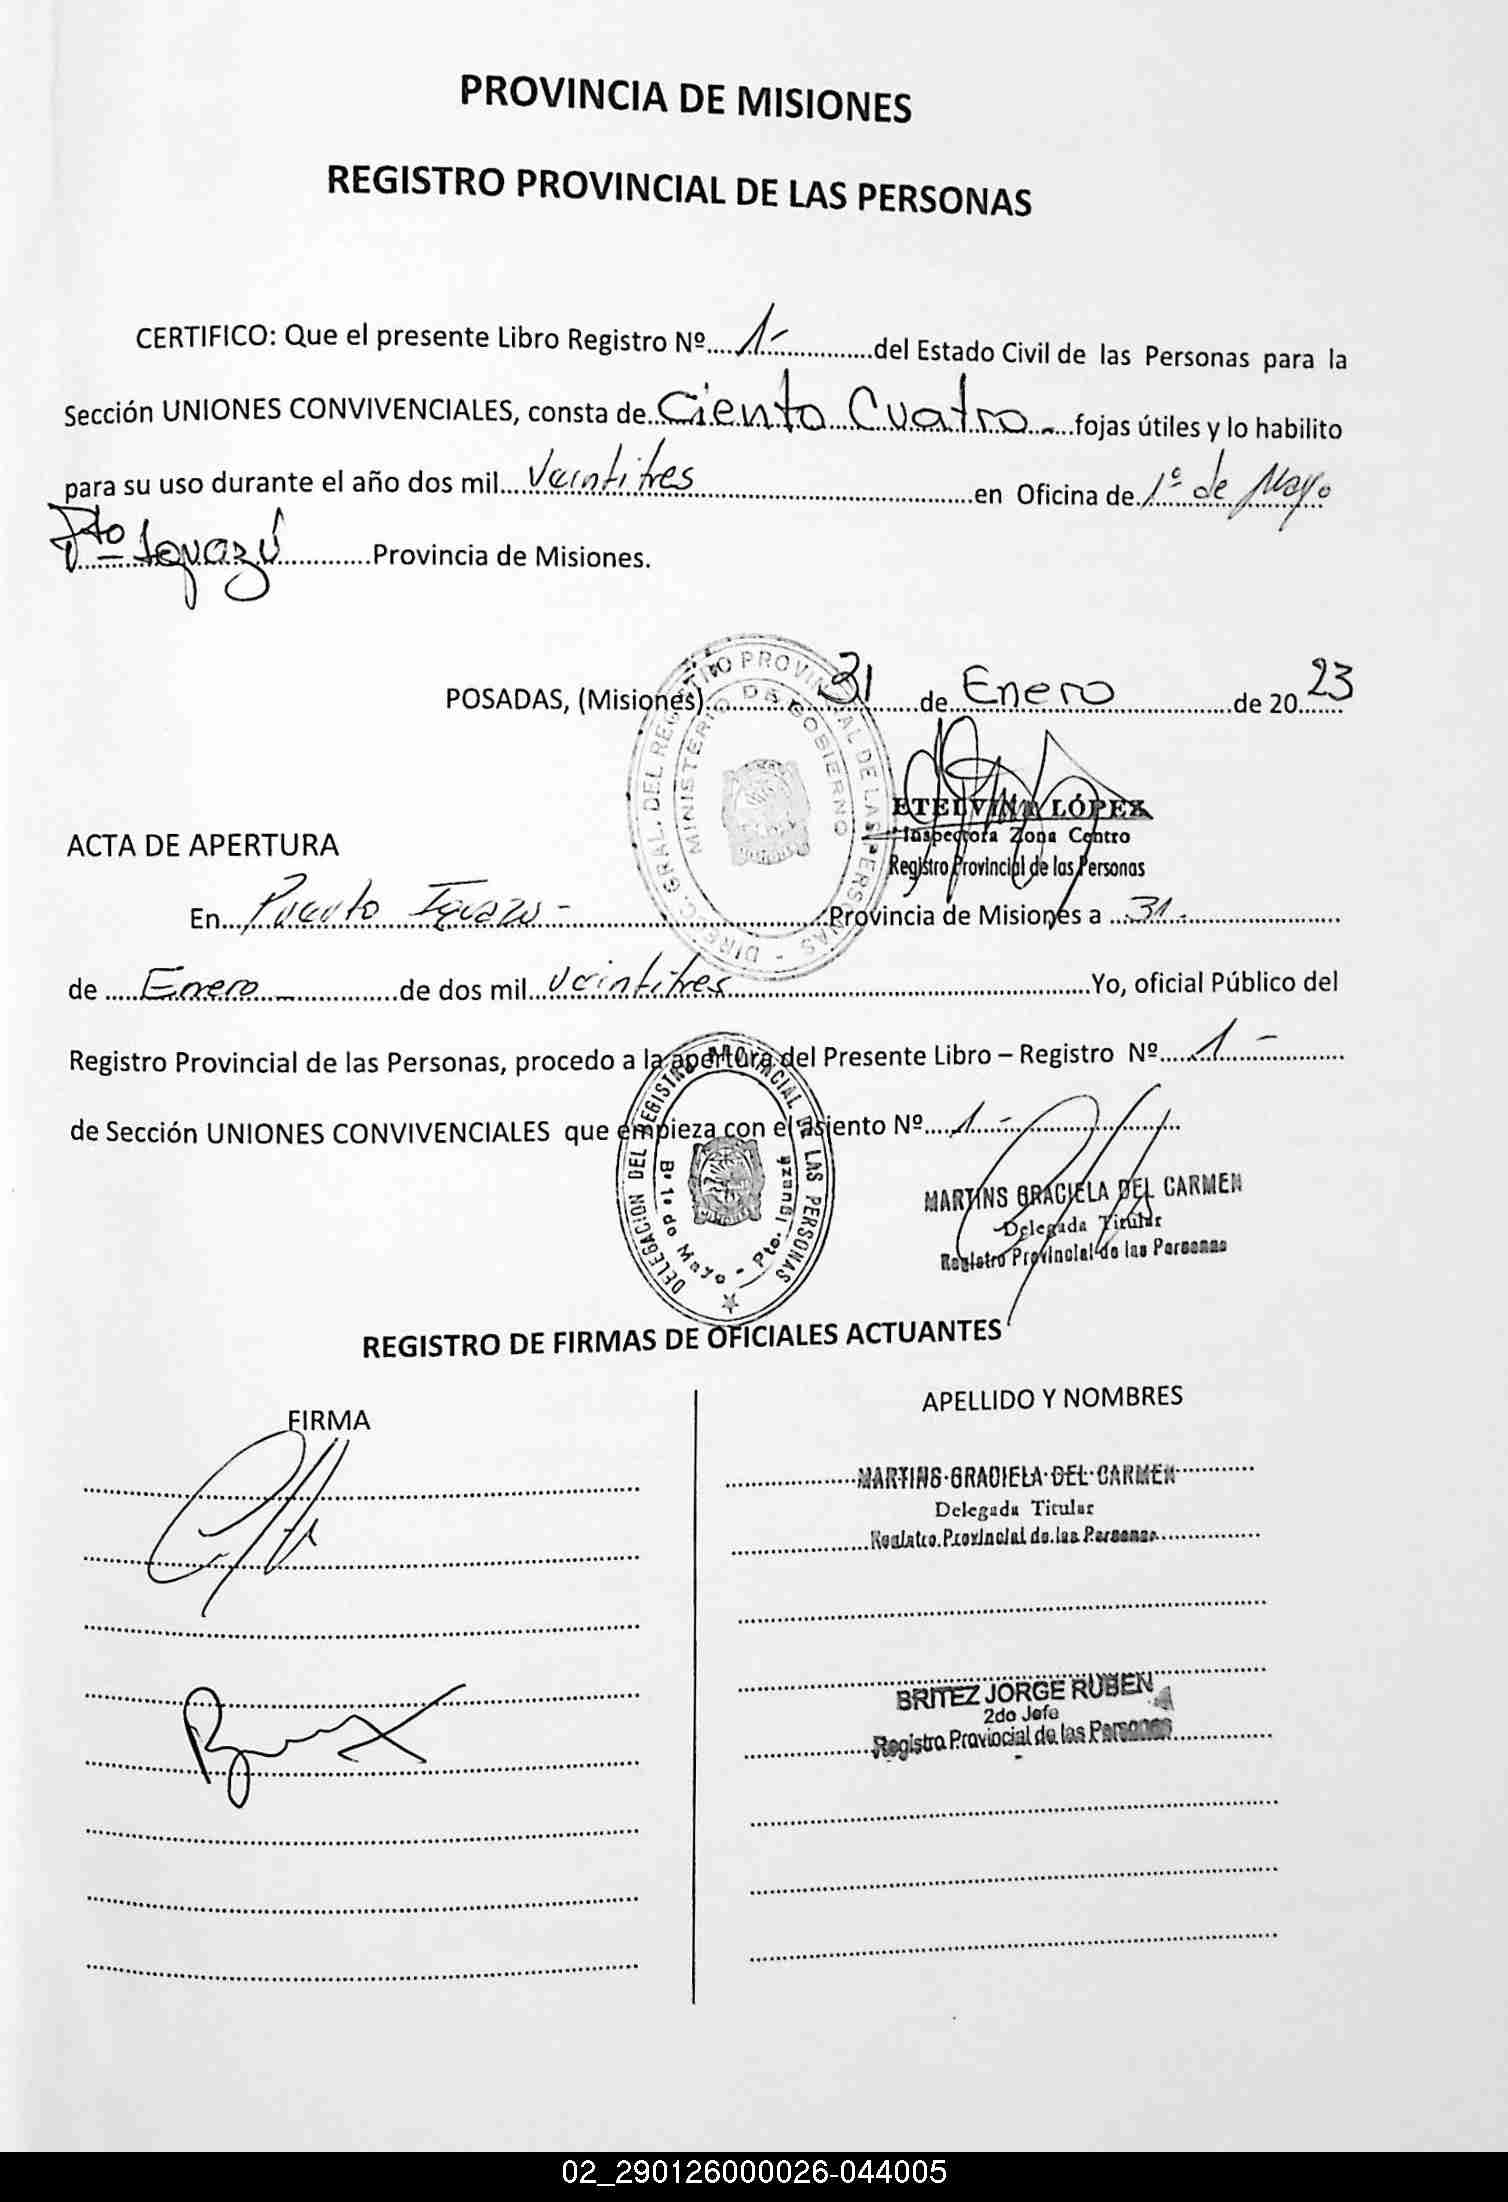 PROVINCIA DE MISIONES
REGISTRO PROVINCIAL DE LAS PERSONAS
CERTIFICO: Que el presente Libro Registro Nº 1- del Estado Civil de las Personas para la
Sección UNIONES CONVIVENCIALES, consta de Ciento Cuatro fojas útiles y lo habilito
para su uso durante el año dos mil veintitres en Oficina de 1º de Mayo
Pto Iguazú Provincia de Misiones.
POSADAS, (Misiones) 31 de Enero de 2023
DIREC. GRAL. DEL REGISTRO PROVINCIAL DE LAS PERSONAS -
MINISTERIO DE GOBIERNO
ETELVINA LÓPEZ
Inspectora Zona Centro
Registro Provincial de las Personas
ACTA DE APERTURA
En Puerto Iguazú - Provincia de Misiones a 31.
de Enero de dos mil veintitres Yo, oficial Público del
Registro Provincial de las Personas, procedo a la apertura del Presente Libro – Registro Nº 1 -
de Sección UNIONES CONVIVENCIALES que empieza con el asiento Nº 1-
DELEGACION DEL REGISTRO PROVINCIAL DE LAS PERSONAS
Bº 1º de Mayo - Pto. Iguazú
MARTINS GRACIELA DEL CARMEN
Delegada Titular
Registro Provincial de las Personas
REGISTRO DE FIRMAS DE OFICIALES ACTUANTES
FIRMA
APELLIDO Y NOMBRES
MARTINS GRACIELA DEL CARMEN
Delegada Titular
Registro Provincial de las Personas
BRITEZ JORGE RUBEN
2do Jefe
Registro Provincial de las Personas
02_290126000026-044005